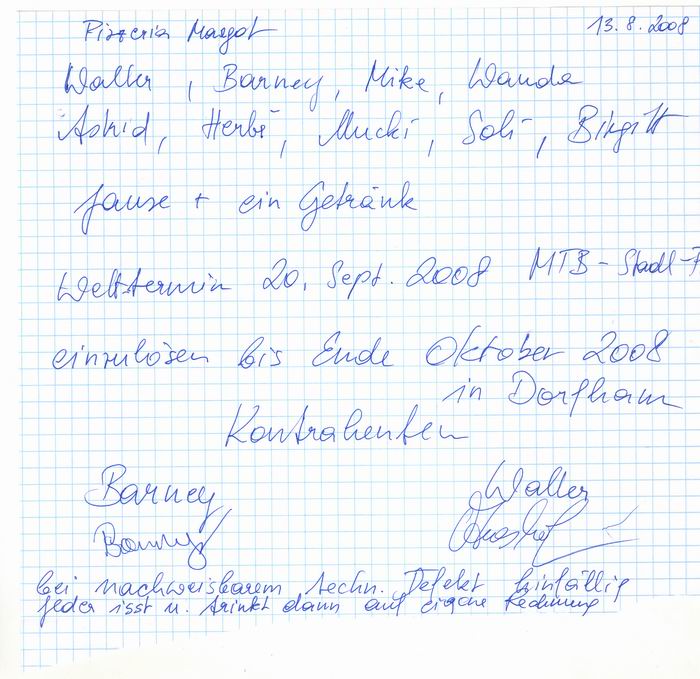 Pizzeria Margot 13.8.2008
Walter, Barney, Mike, Wanda
Astrid, Herbi, Mucki, Sohi, Birgitt
Jause + ein Getränk
Wetttermin 20. Sept. 2008 MTB-Stadl-
einzulösen bis Ende Oktober 2008
in Dorfham
Kontrahenten
Barney Walter
Barney
bei nachweisbarem techn. Defekt hinfällig
jeder isst u. trinkt dann auf eigene Rechnung